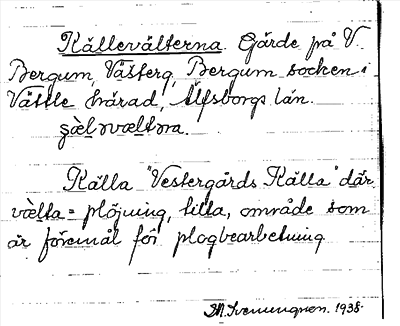 Källevälterna. Gärde på V.
Bergum, Västerg, Bergum socken i
Vättle härad, Älfsborgs län.
Källa "Vestergårds Källa" där
välta = plöjning, tilta, område som
är föremål för plogbearbetning
1938.